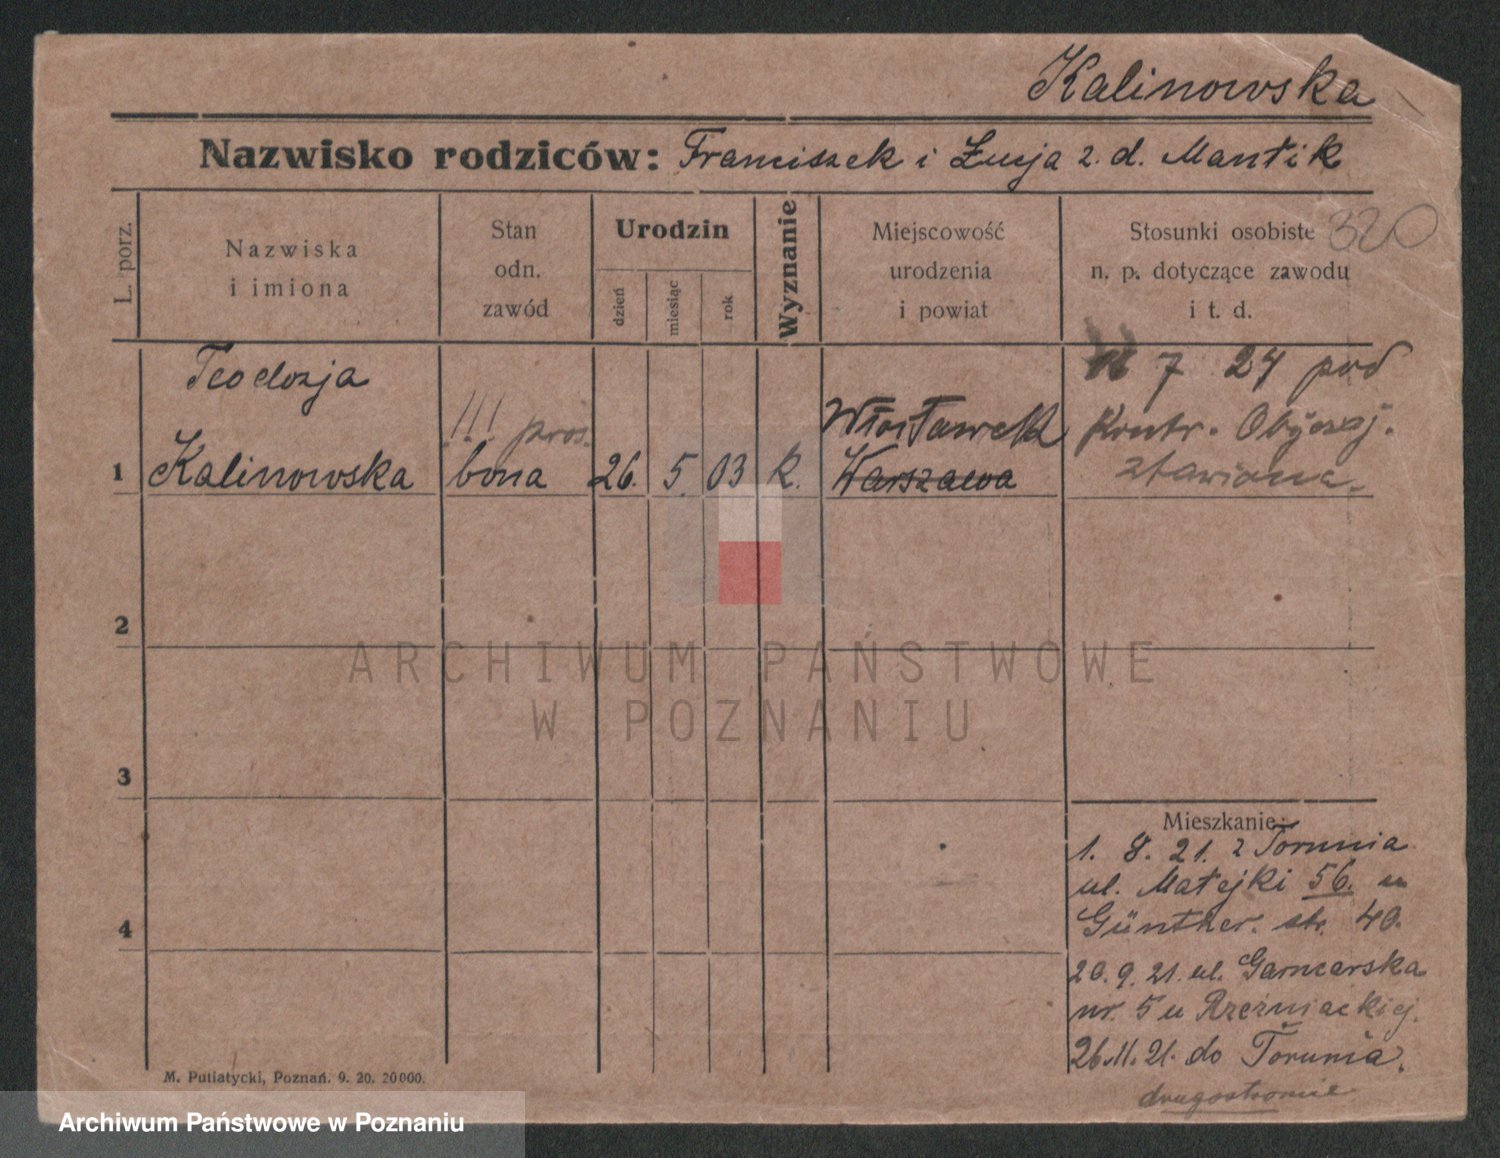 Kalinowska
Nazwisko rodziców: Franciszek i Łucja z. d. Mantik
L. porz.
Nazwiska
i imiona
Stan
odn.
zawód
Urodzin
dzień
miesiąc
rok
Wyznanie
Miejscowość
urodzenia
i powiat
Stosunki osobiste
n. p. dotyczące zawodu
i t. d.
320
Teodozja
1 Kalinowska
!!! pros.
bona
26. 5. 03 k.
Włocławek
Warszawa
7 24 pod
Kontr. Obyczaj.
stawiona.
2
3
4
Mieszkanie:
1. 8. 21. z Torunia
ul. Matejki 56. u
Günther. str. 40.
20. 9. 21. ul. Garncarska
nr. 5 u Rzeźniackiej.
26.11.21. do Torunia.
drugostronie
M. Putiatycki, Poznań. 9. 20. 20000.
ARCHIWUM PAŃSTWOWE
W POZNANIU
Archiwum Państwowe w Poznaniu